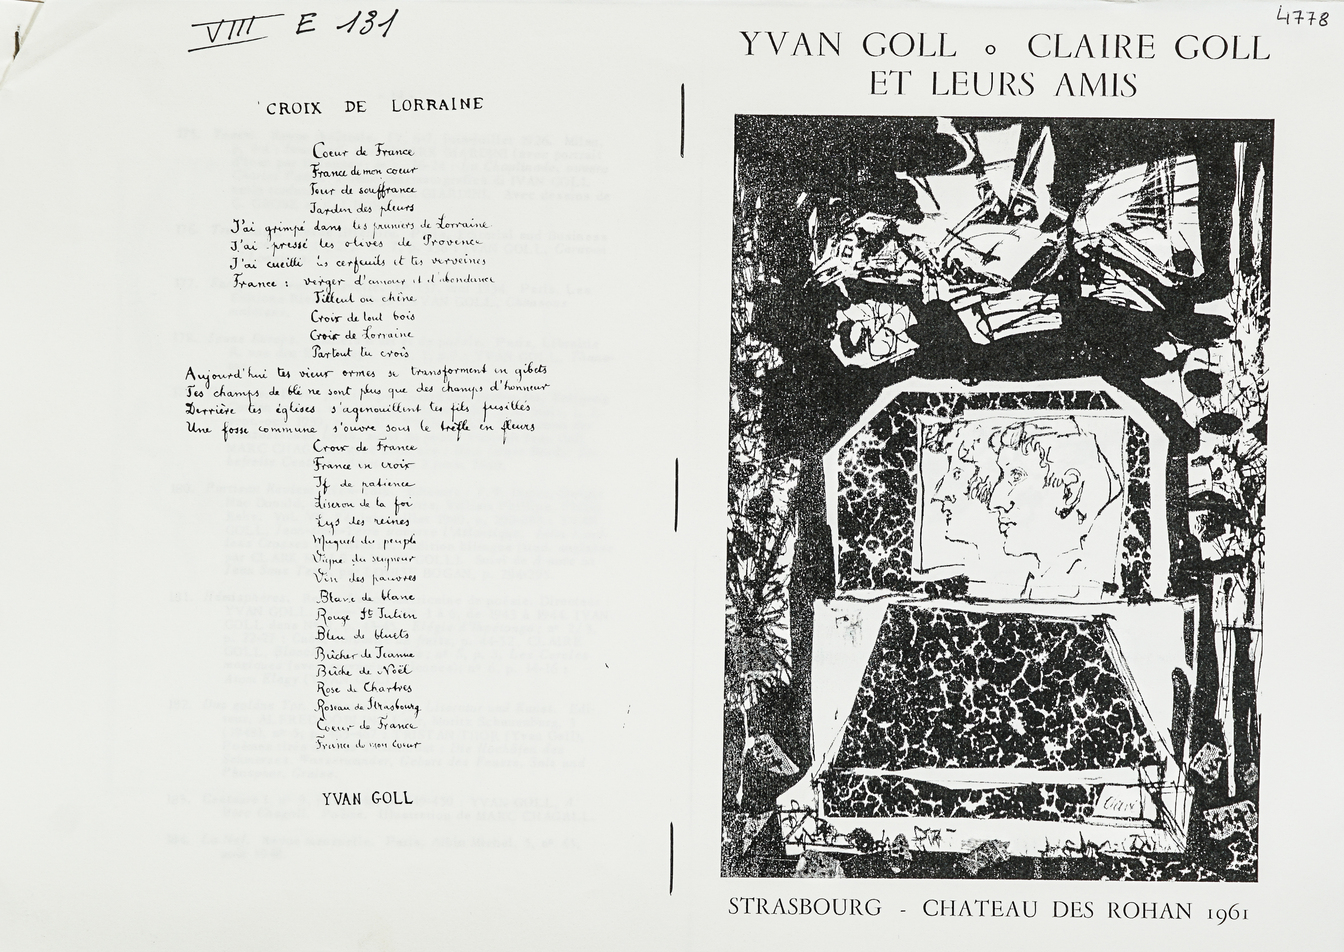 VIII E 131
CROIX DE LORRAINE
Coeur de France
France de mon coeur
Tour de souffrance
Jardin des pleurs
J'ai grimpé dans tes pruniers de Lorraine
J'ai pressé tes olives de Provence
J'ai cueilli tes cerfeuils et tes verveines
France : verger d'amour et d'abondance
Tilleul ou chêne
Croix de tout bois
Croix de Lorraine
Partout tu crois
Aujourd'hui tes vieux ormes se transforment en gibets
Tes champs de blé ne sont plus que des champs d'honneur
Derrière tes églises s'agenouillent tes fils fusillés
Une fosse commune s'ouvre sous le trèfle en fleurs
Croix de France
France en croix
If de patience
Liseron de la foi
Lys des reines
Muguet du peuple
Vigne du seigneur
Vin des pauvres
Blanc de blanc
Rouge St Julien
Bleu de bluets
Bûcher de Jeanne
Bûche de Noël
Rose de Chartres
Roseau de Strasbourg
Coeur de France
France de mon coeur
YVAN GOLL
4778
YVAN GOLL o CLAIRE GOLL
ET LEURS AMIS
STRASBOURG - CHATEAU DES ROHAN 1961